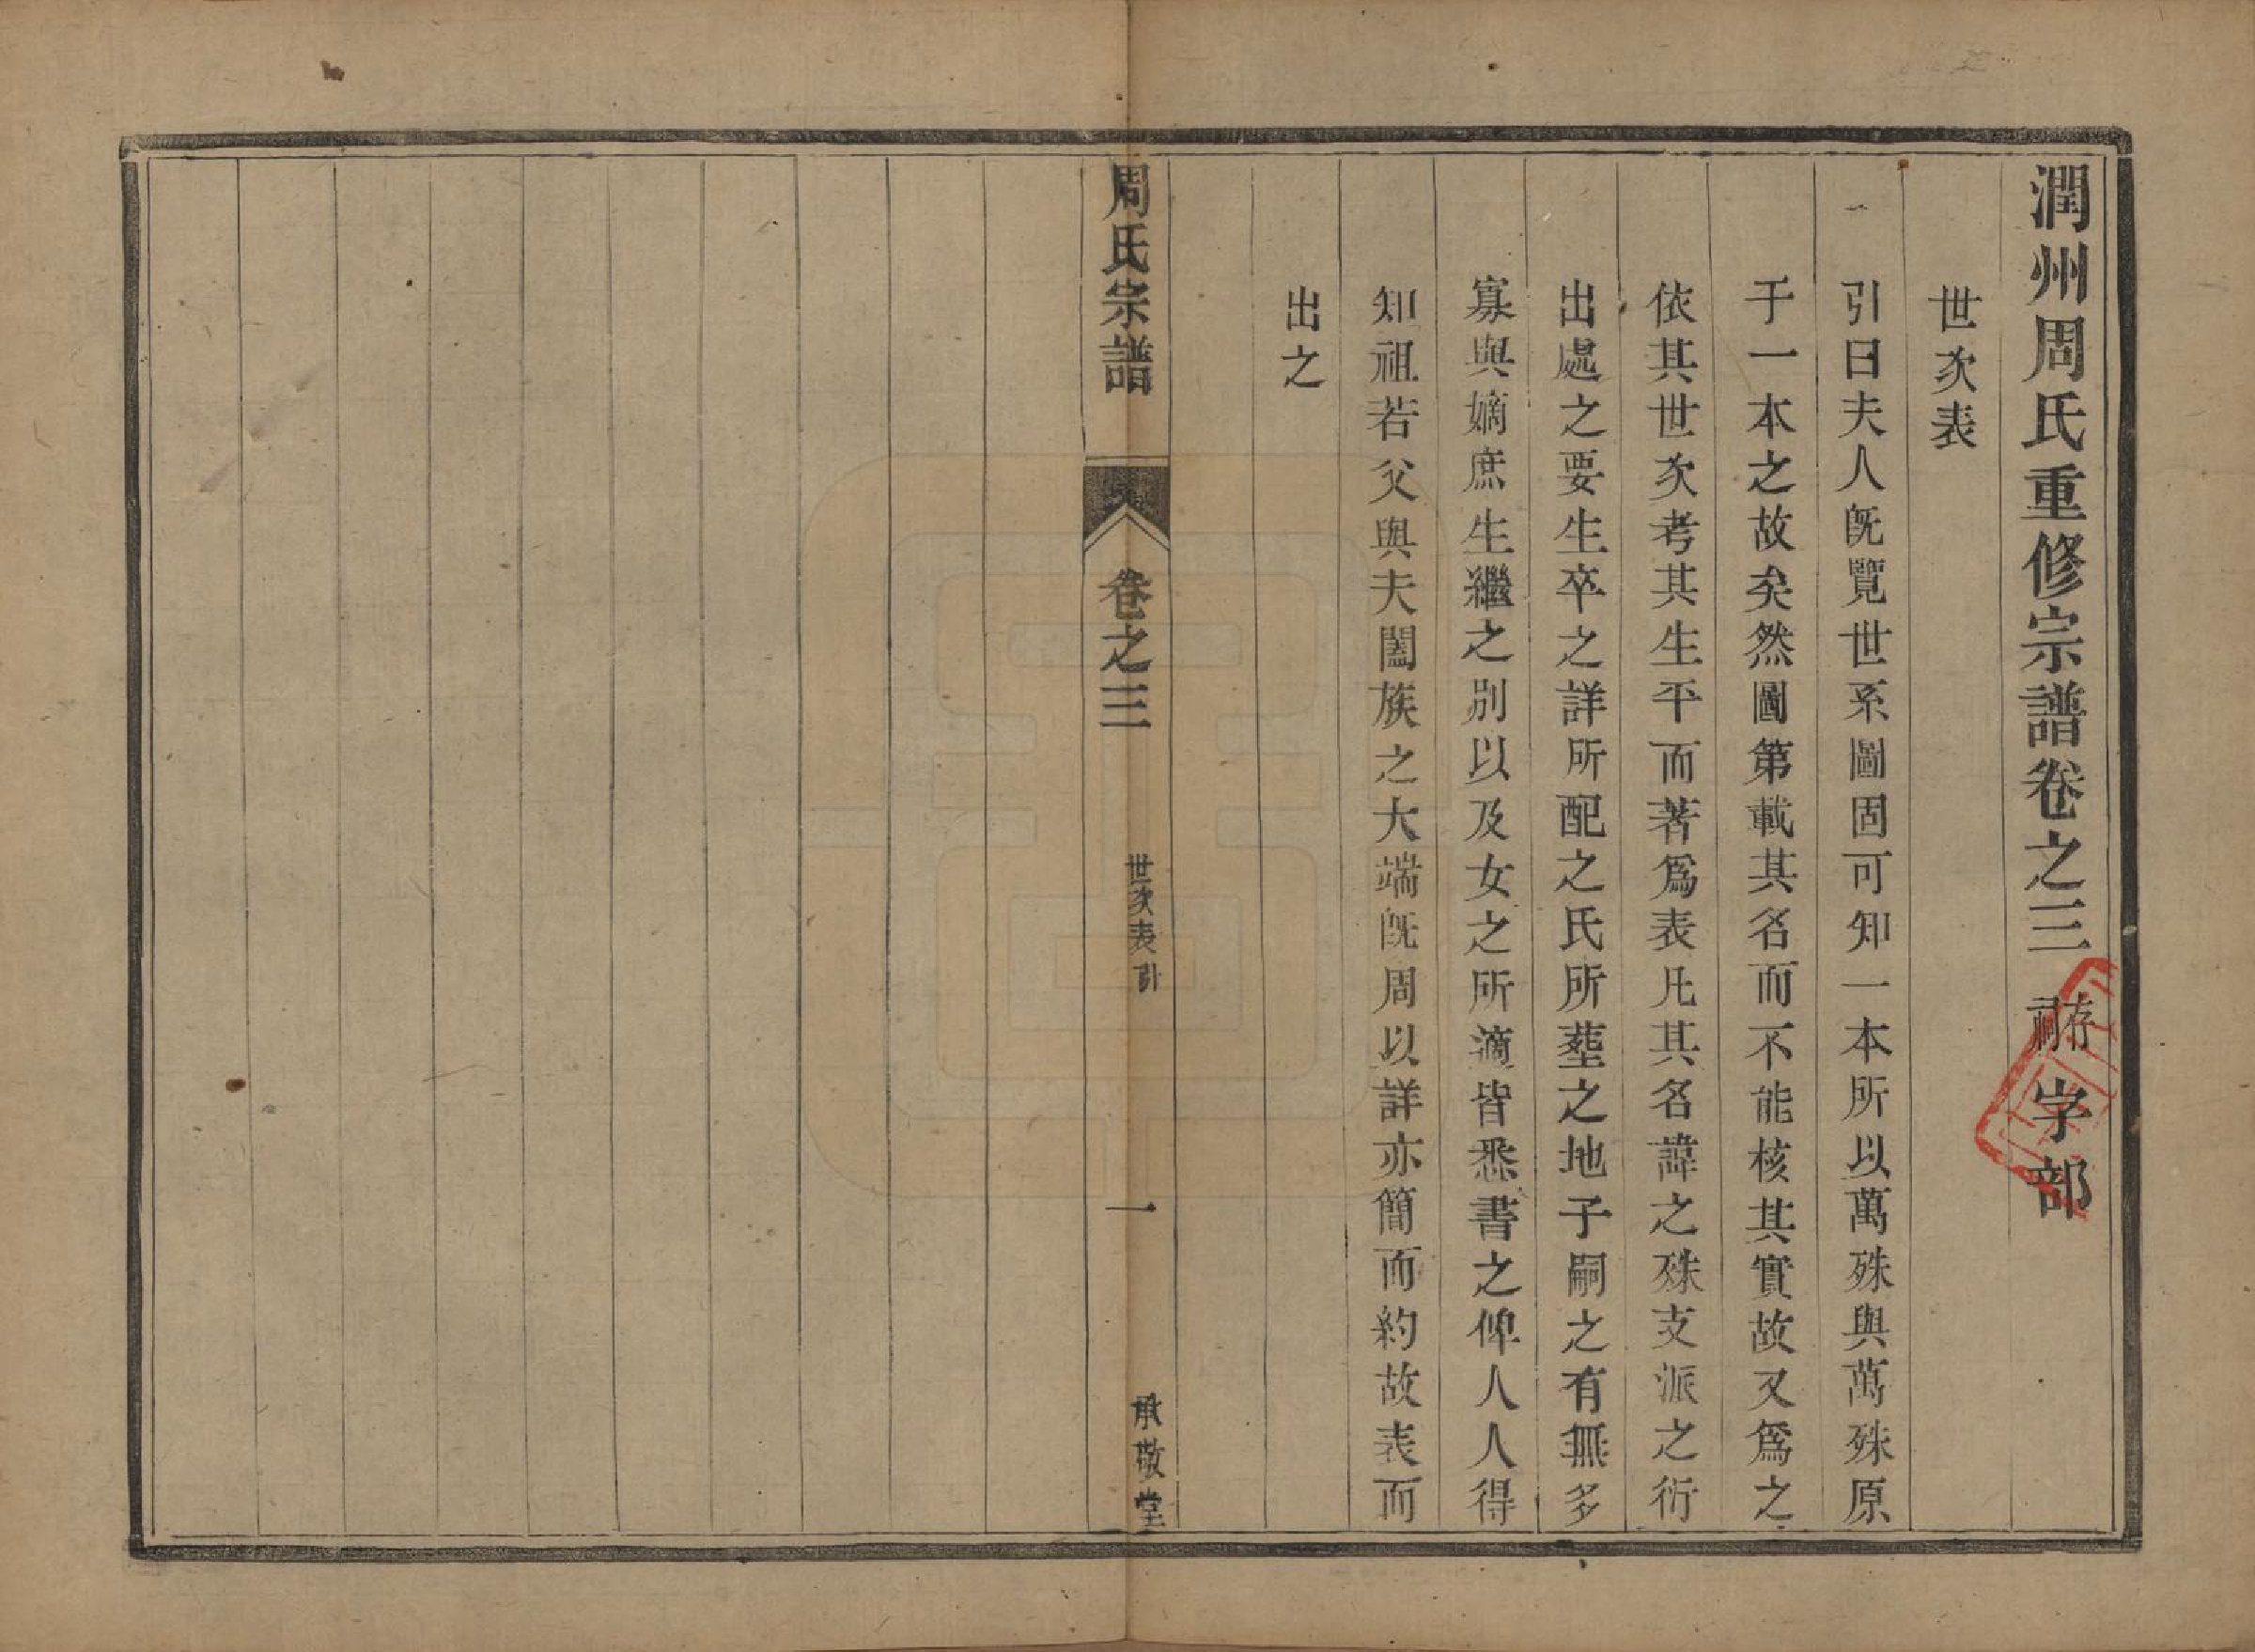 潤州周氏重修宗譜卷之三 存祠 字部
世次表
引曰夫人旣覽世系圖固可知一本所以萬殊與萬殊原
于一本之故矣然圖第載其名而不能核其實故又爲之
依其世次考其生平而著爲表凡其名諱之殊支派之衍
出處之要生卒之詳所配之氏所塟之地子嗣之有無多
寡與嫡庶生繼之別以及女之所適皆悉書之俾人人得
知祖若父與夫闔族之大端旣周以詳亦簡而約故表而
出之
周氏宗譜 卷之三 世次表引 一 承敬堂